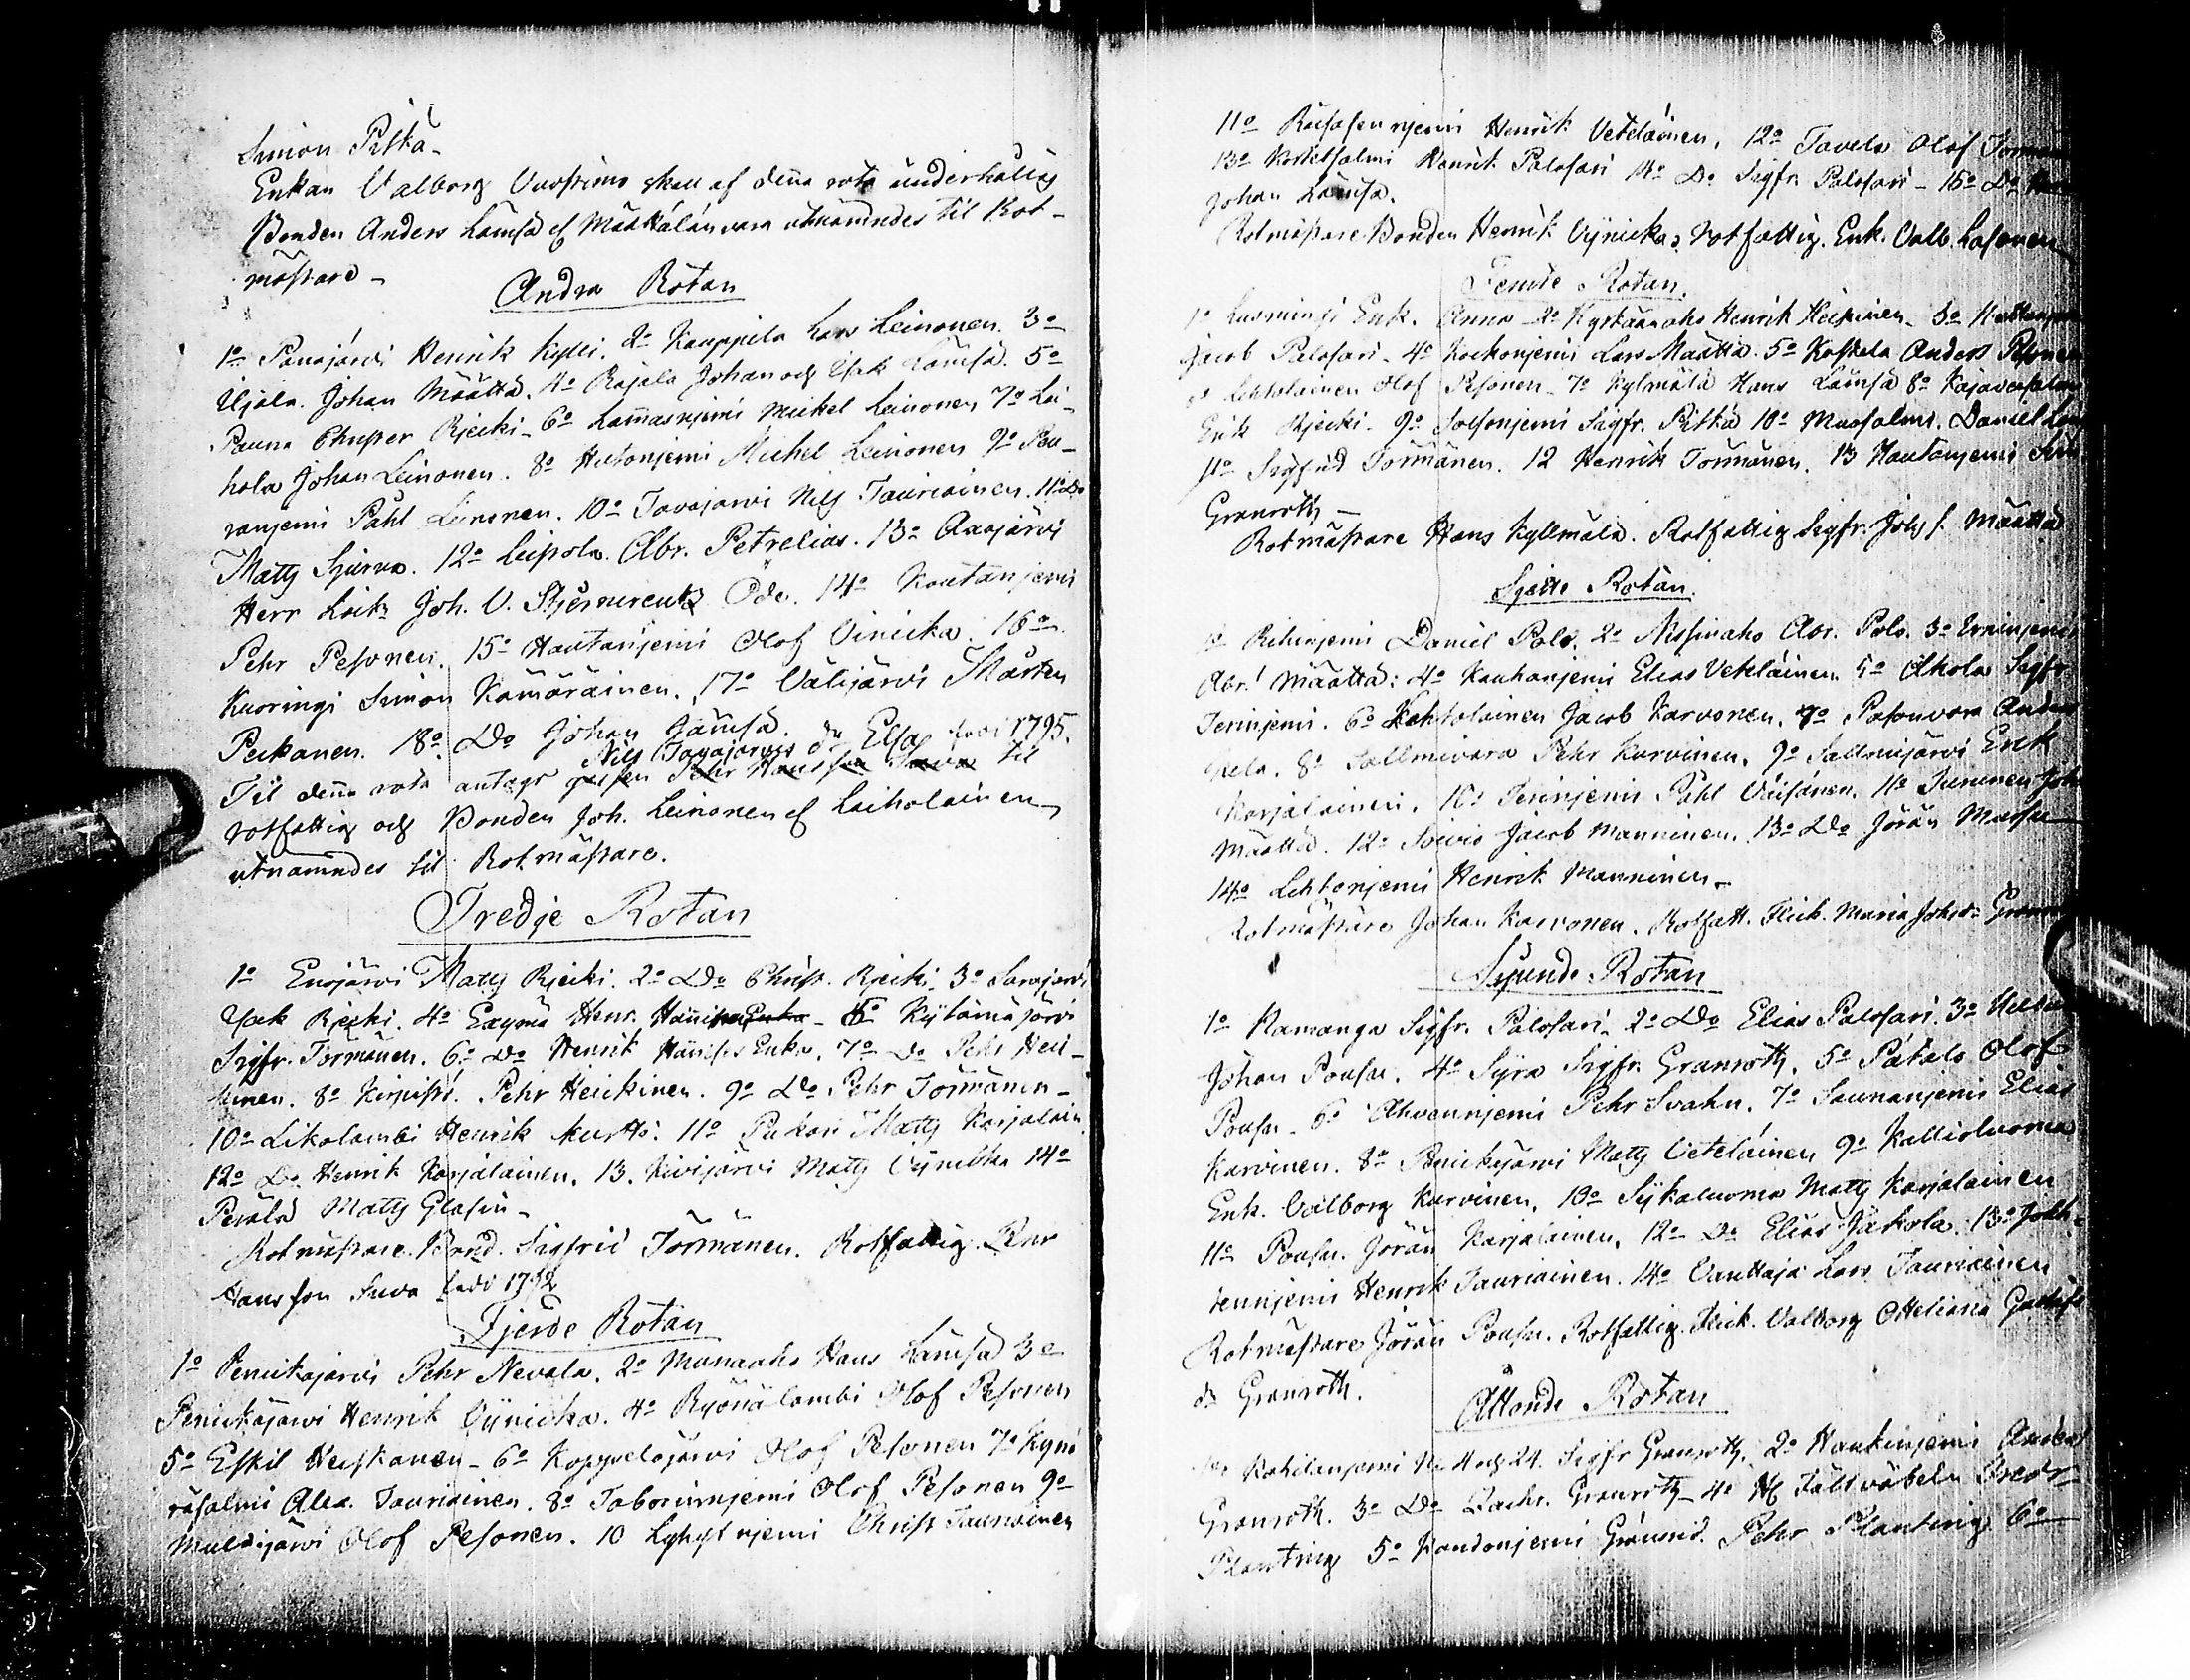 Simon Pitkä.
Enkan Valborg Vuossimo skall af denna rota underhållas
Bonden Anders Lämsä ef Määttälänvara utnämndes til Rot-
mästare.
Andra Rotan
1o Panajärvi Henrik Kylli. 2o Kauppila Lars Leinonen. 3o
Ujala. Johan Määttä. 4o Rajala Johan och Isak Lämsä. 5o
Pauna Christer Rjecki. 6o Lammasnjemi Mickel Leinonen 7o Lai-
hola Johan Leinonen. 8o Hutonjemi Michel Leinonen 9o Peu-
ranjemi Påhl Leinonen. 10o Tavajärvi Nils Tauriainen. 11o Do
Matts Sjurva. 12o Leipola. Abr. Petrelius. 13o Aasjärvi
Herr Loitz Joh. U. Stjerncreutz Öde. 14o Koutanjemi
Pehr Pesonen. 15o Hautanjemi Olof Vinicka. 16o
Kuoringi Simon Kämäräinen. 17o Välijärvi Mårten
Peckanen. 18o Do Johan Jämsä.
Nils Tavajärvis dr Elsa född 1795.
Til denna rota antags Pehr Hansson Suva til
rotfattig och Bonden Joh. Leinonen ef Laiholainen
utnämndes til Rotmästare.
Tredje Rotan
1o Enijärvi Matts Rjecki. 2o Do Christ. Rjecki. 3o Sarajärvi
Isak Rjecki. 4o Exymä Henr. Hänninens Enka - 5o Kylämäjärvi
Sigfr. Törmänen. 6o Do Henrik Hännises Enka. 7o Do Pehr Hei-
kinen. 8o Kirpistö. Pehr Heickinen. 9o Do Pehr Törmänen -
10o Likolambi Henrik Murtto. 11o Pukari Matts Karjalain.
12o Do Henrik Karjalainen. 13. Kivijärvi Matts Vynicka 14o
Perälä Matts Glasin -
Rotmästare. Bond. Sigfrid Törmänen. Rotfattig. Pehr
Hansson Suva född 1732
Fjerde Rotan
1o Penickajärvi Pehr Nevala. 2o Munaaho Hans Lämsä 3o
Penickäjärvi Henrik Vynicka. 4o Ryönälambi Olof Pesonen
5o Eskil Heiskanen - 6o Koppelojärvi Olof Pesonen 7o Kynä
räsalmi Alex. Tauriainen. 8o Taborinnjemi Olof Pesonen 9o
Muldijärvi Olof Pesonen. 10 Lyhytnjemi Christ Tauriainen
11o Ruisasenjemi Henrik Veteläinen. 12o Tavela Olof
13o Kostetsalmi Henrik Palosari 14o Do Sigfr. Palosari - 15o Do
Johan Lämsä.
Rotmästare Bonden Henrik Vynicka. Rotfattig. Enk. Valb. Lasonen
Femte Rotan.
1o Lusmingi Enk. Anna 2o Kystäänaho Henrik Heickinen. 3o
Jacob Palosari. 4o Kockonjemi Lars Määttä. 5o Koskela Anders Pesonen
Lehtolainen Olof Pesonen. 7o Kylmälä Hans Lämsä 8o Kajavasalmi
Erik Rjecki. 9o Solsonjemi Sigfr. Pitkä 10o Muosalmi. Daniel
11o Sigfrid Törmänen. 12 Henrik Törmänen. 13 Hautanjemi
Granroth -
Rotmästare Hans Kyllmälä. Rotfattig Sigfr. Johs s. Määttä
Sjette Rotan.
1o Rihinjemi Daniel Polo. 2o Nissinaho Abr. Polo. 3o Irninjemi
Abr. Määttä: 4o Kauhanjemi Elias Veteläinen. 5o Akola Sigfr
Terinjemi. 6o Lehtolainen Jacob Karvonen. 7o Pasonvara Anders
8o Sallmivara Pehr Karvinen. 9o Sallmijärvi Erik
Karjalainen. 10o Terinjemi Påhl Väisänen. 11o Jurunen Joh
Määttä. 12o Soivio Jacob Manninen. 13o Do Jöran
14o Lehtonjemi Henrik Manninen.
Rotmästare Johan Karvonen. Rotfatt. Flick. Maria Johsdr
Sjunde Rotan
1o Kamanga Sigfr. Palosari. 2o Do Elias Palosari. 3o
Johan Pousu. 4o Syra Sigfr. Granroth. 5o Patala Olof
Pousu. 6o Ahvennjemi Pehr Svahn. 7o Saunanjemi Elias
Karvinen. 8o Penickäjärvi Matts Veteläinen 9o Kallioluoma
Enk. Valborg Karvinen. 10o Sykaluoma Matts Karjalainen
11o Pousu. Jöran Karjalainen. 12o Do Elias Jakola. 13o Jokk-
sennjemi Henrik Tauriainen. 14o Vanttaja Lars Tauriainen
Rotmästare Jöran Pousu. Rotfattig. Flick. Valborg Otteliana Gustafs
dr Granroth.
Attonde Rotan
1o Kohilanjemi No 4 och 24. Sigfr Granroth. 2o Haukinjemi Anders
Granroth. 3o Do Zachr. Granroth - 4o H Fältväbeln Fredr
Planting 5o Kandonjemi Grausrd. Pehr Planting 6o